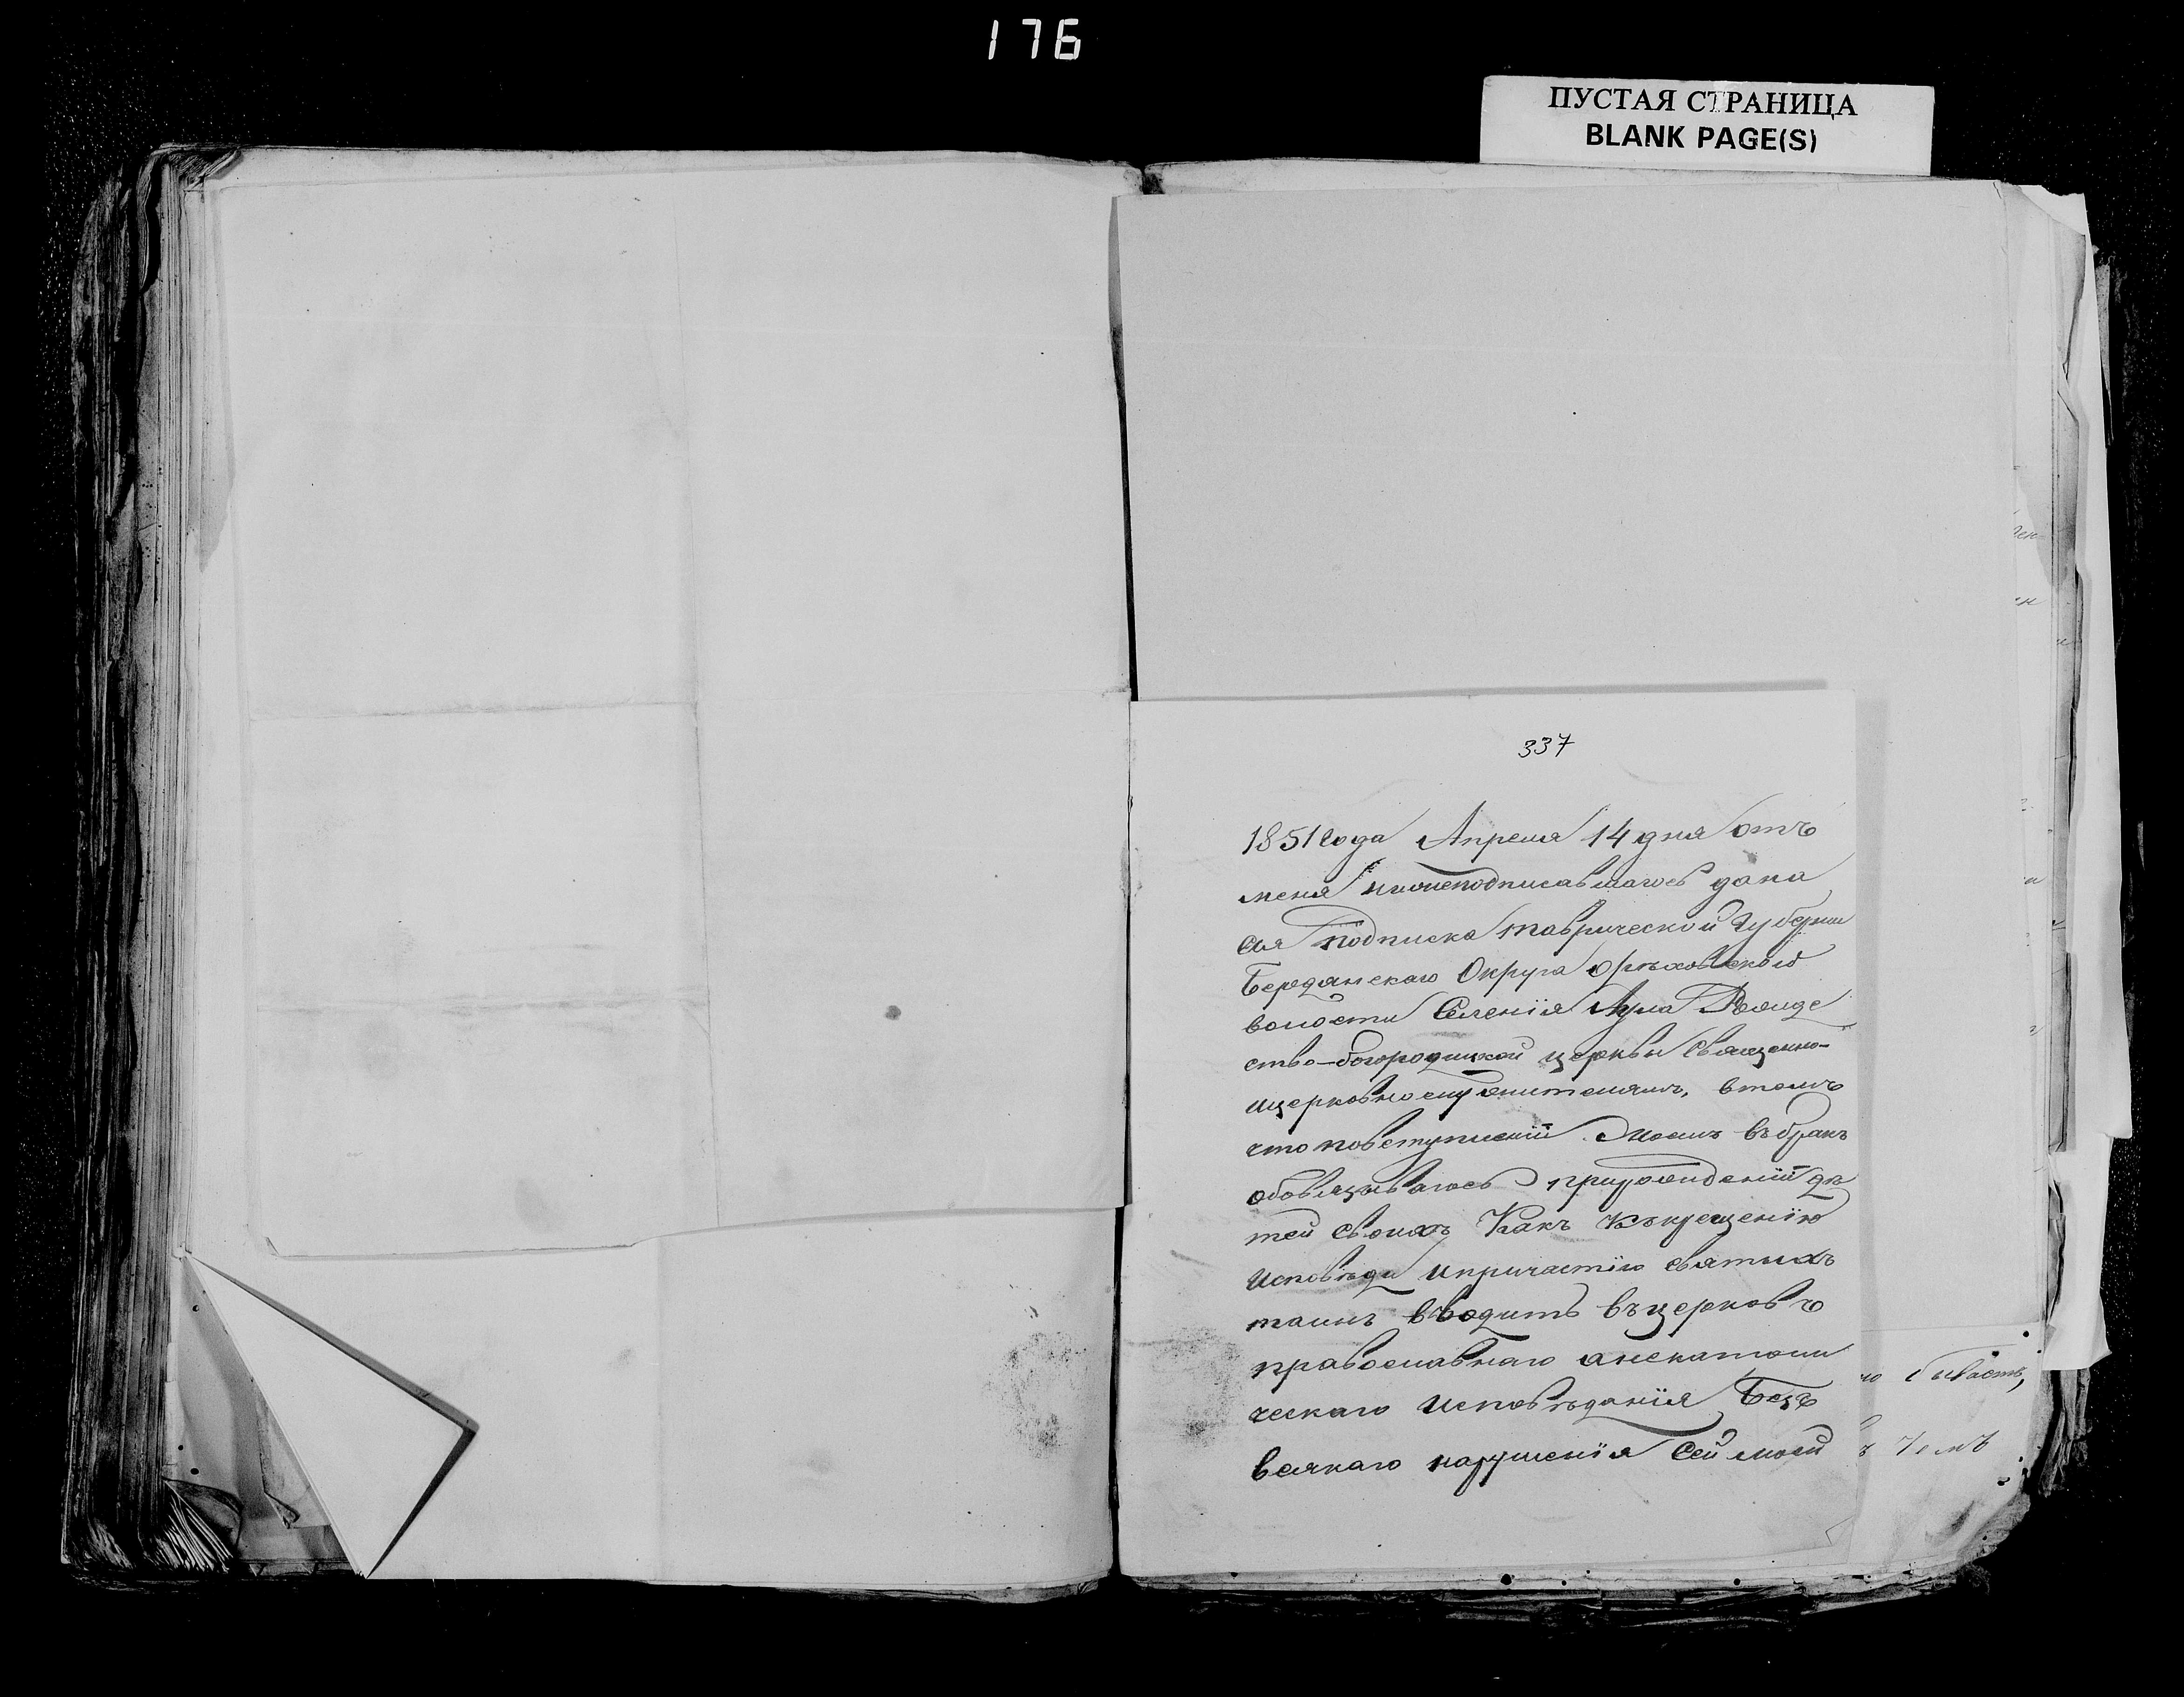 176
ПУСТАЯ СТРАНИЦА
BLANK PAGE(S)
337
1851 года Апреля 14 дня отъ
меня нижеподписавшагось дана
сия подписка таврической Губернии
Бердянскаго Округа Орѣховской
волости Селенія Аула Рожде
ство-богородицкой церквы Священно-
ицерковнослужителямъ, втомъ
что повступленіи Моемъ въбракъ
обовязываюсь прирожденіи дѣ
тей своихъ Какъ Къкрещенію
Исповѣди ипричастію святыхъ
таинъ вводить въцерковъ
православнаго анекатоли
ческаго исповѣданія Безъ
всякаго нарушенія Сей моей
чемъ